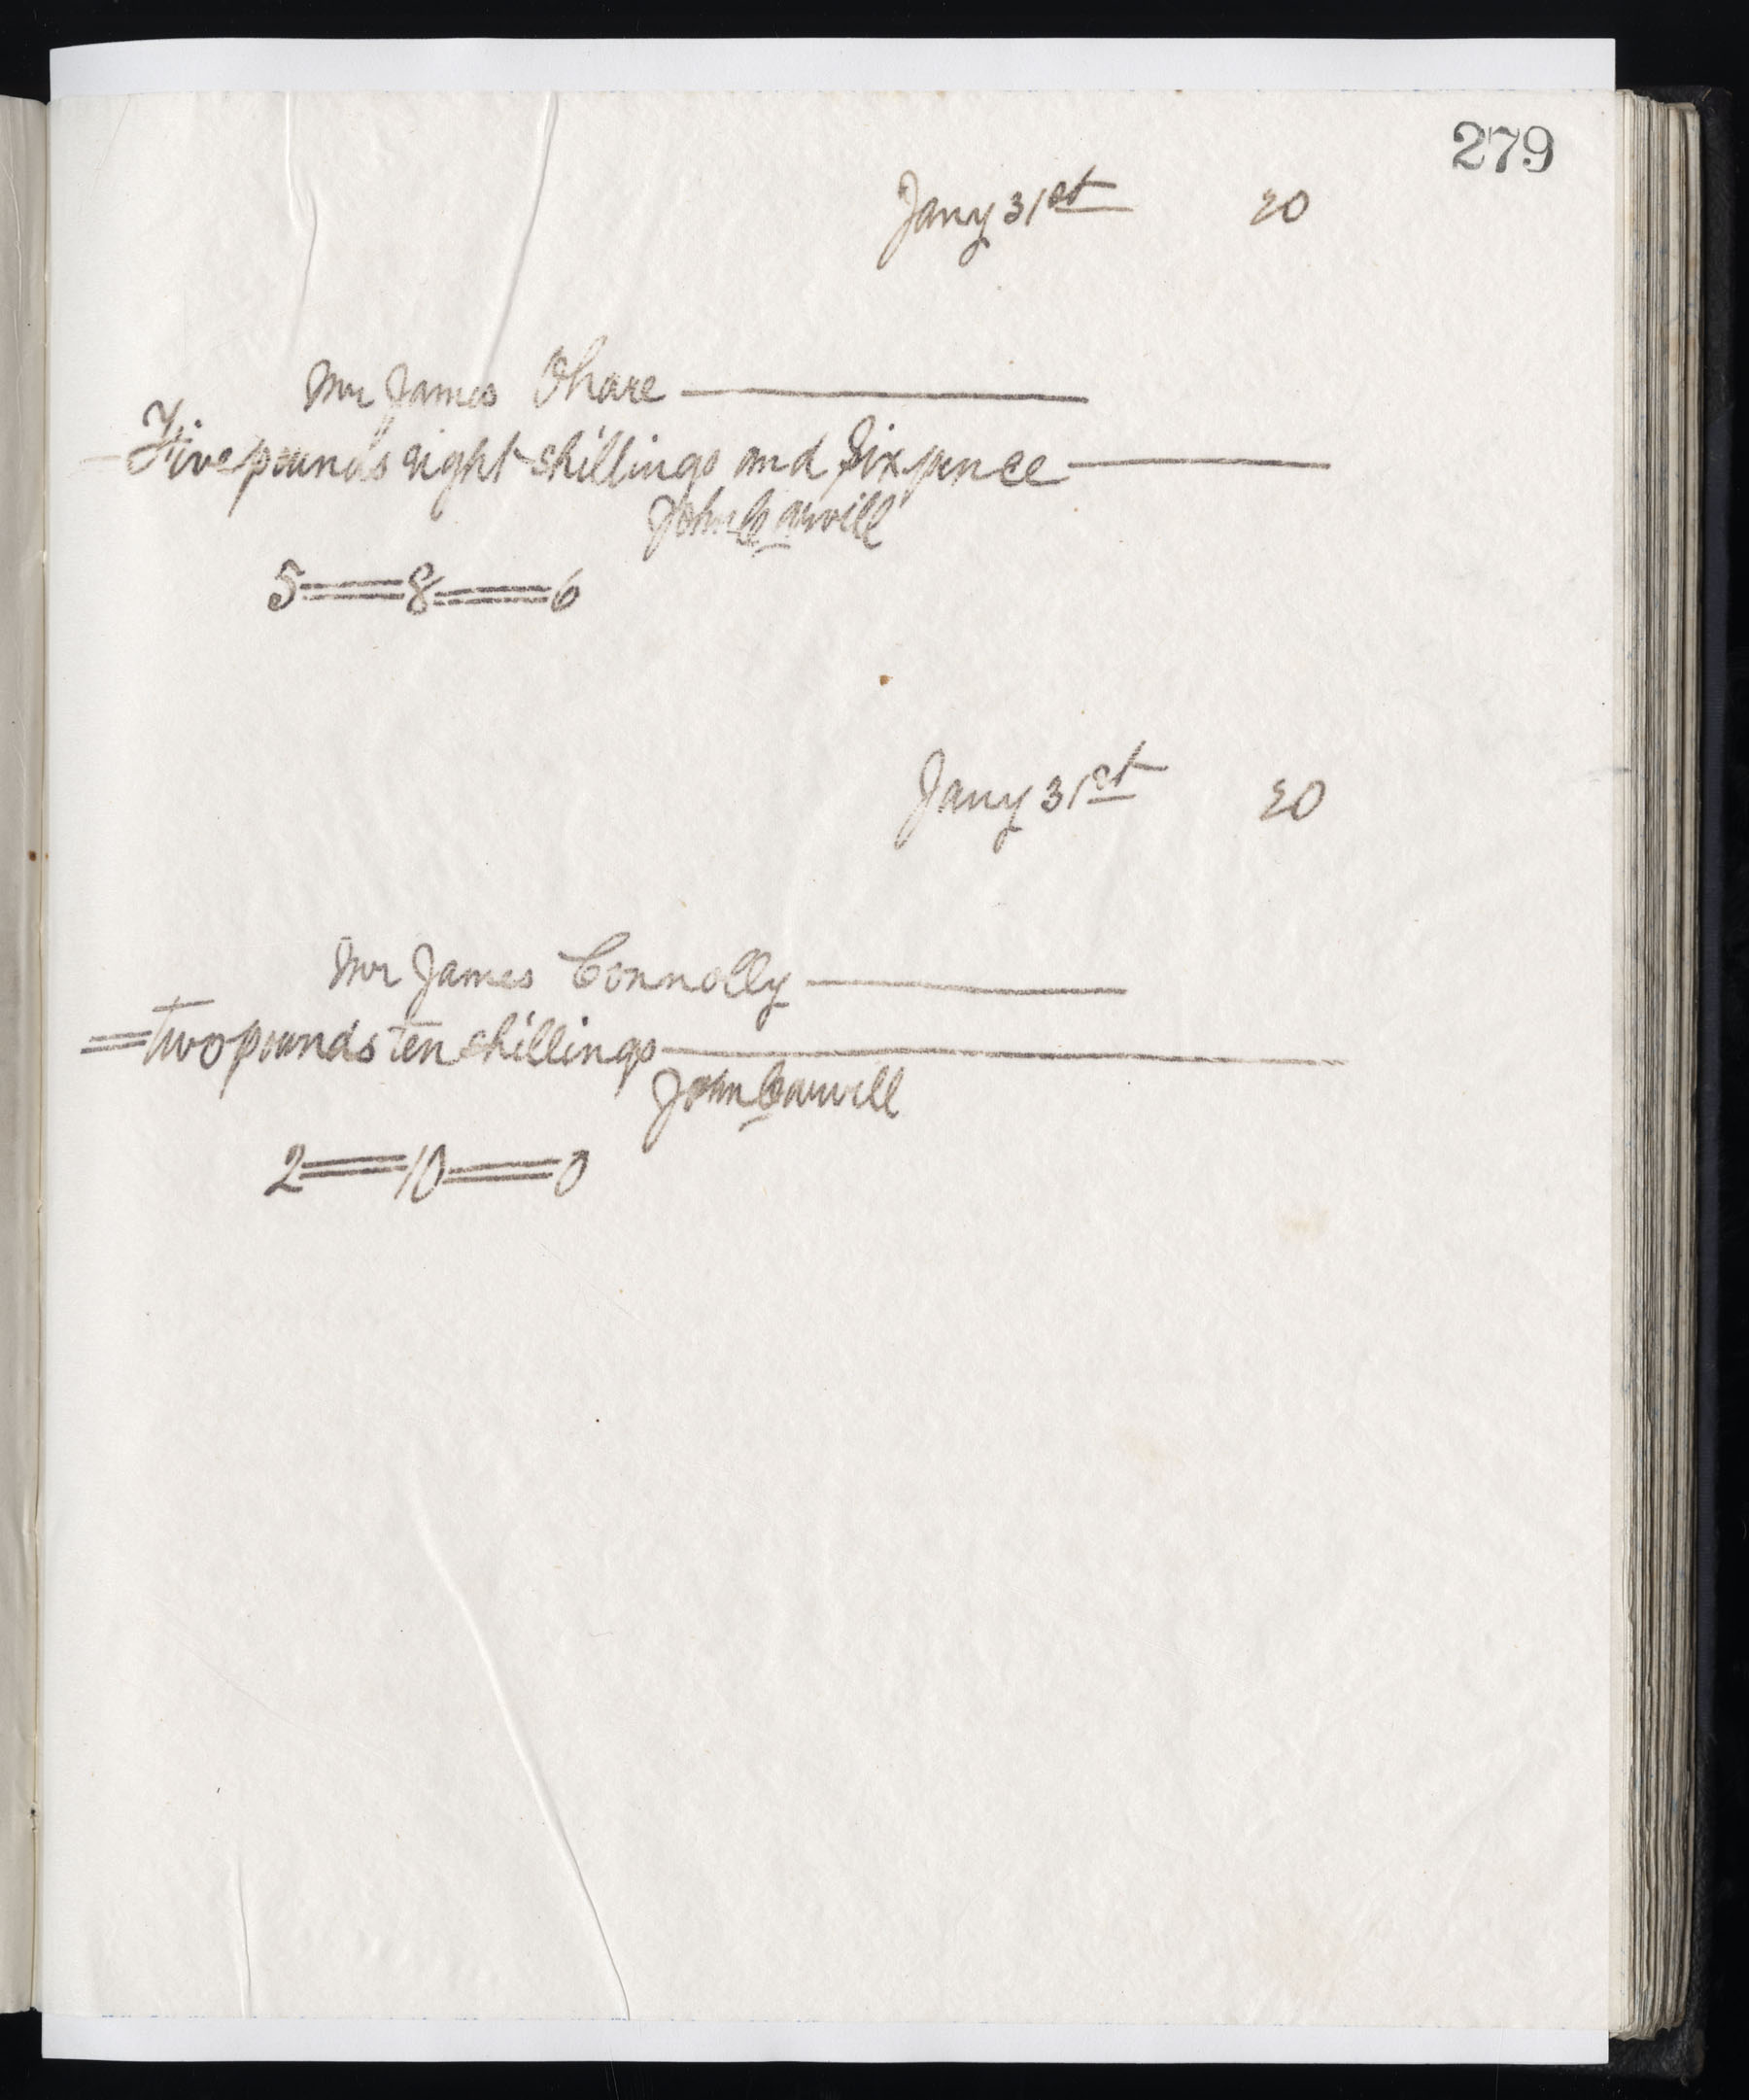 279
Jany 31st 20
Mr James Ohare
Five pounds eight shillings and Six pence
John Carvill
5 == 8 == 6
Jany 31st 20
Mr James Connolly
= Two pounds Ten shillings
John Carvill
2 == 10 == 0